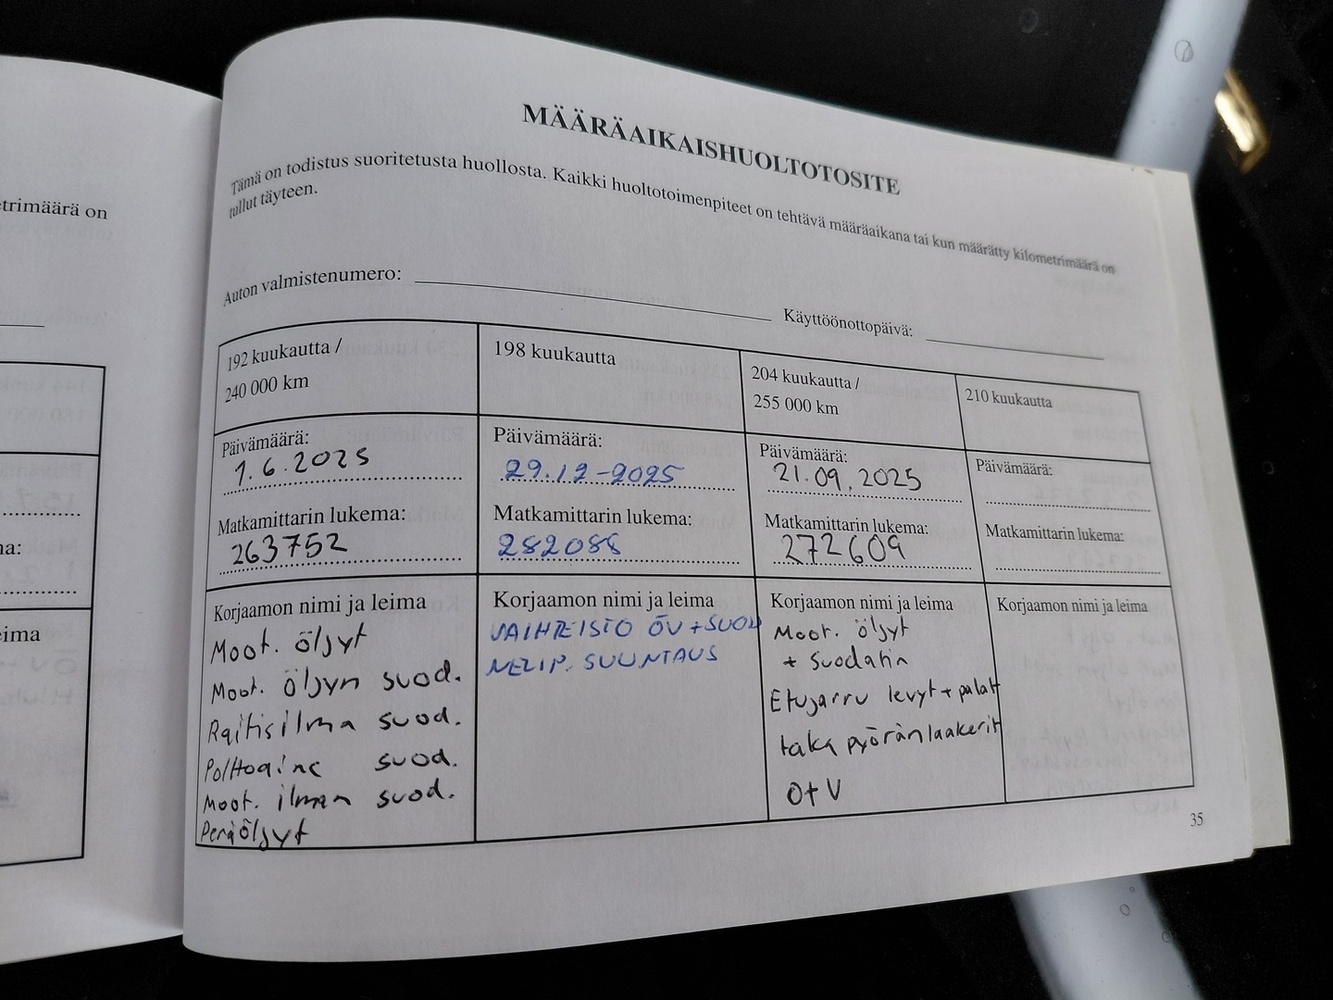 trimäärä on
na:
eima
MÄÄRÄAIKAISHUOLTOTOSITE
Tämä on todistus suoritetusta huollosta. Kaikki huoltotoimenpiteet on tehtävä määräaikana tai kun määrätty kilometrimäärä on
tullut täyteen.
Auton valmistenumero:
Käyttöönottopäivä:
192 kuukautta /
240 000 km
Päivämäärä:
1.6.2025
Matkamittarin lukema:
263752
Korjaamon nimi ja leima
Moot. öljyt
Moot. öljyn suod.
Raitisilma suod.
Polttoaine suod.
Moot. ilman suod.
Peräöljyt
198 kuukautta
Päivämäärä:
29.12-2025
Matkamittarin lukema:
282088
Korjaamon nimi ja leima
VAIHTEISTO ÖV+SUOD
NELIP. SUUNTAUS
204 kuukautta /
255 000 km
Päivämäärä:
21.09.2025
Matkamittarin lukema:
272609
Korjaamon nimi ja leima
Moot. öljyt
+ suodatin
Etujarru levyt + palat
taka pyöränlaakerit
O+V
210 kuukautta
Päivämäärä:
Matkamittarin lukema:
Korjaamon nimi ja leima
35